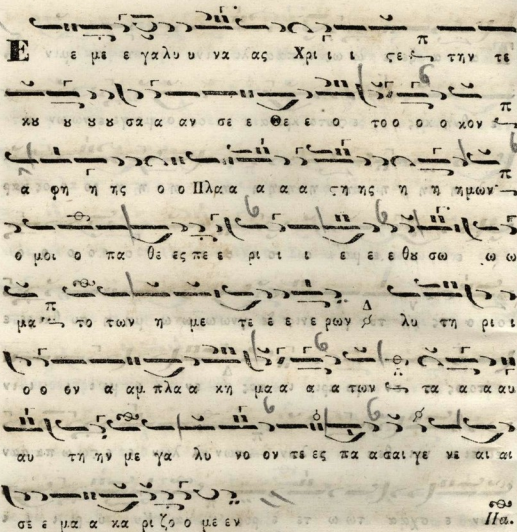 Ε ε με ε γα λυ υ να ας Χρι ι ςε π την τε
κου ου ου ου σα α α αν σε ε Θε ε ε το ο ο ο ο κον π
α φη η ης ο ο Πλα α α α α τη ης η η ημων
ο μοι ο πα θε ες πε ε ρι ι ι ε ε ε ε θου σω ω ω
μα π το των η με τε ε ε ε ρων Δ λυ τη ρι ι
ο ο ον α αμ πλα α κη μα α α α α των τα α τα αυ
αυ τη ην με γα λυ νο ον τε ες πα α σαι γε νε αι αι
σε ε μα α κα ρι ζο ο με εν Πα